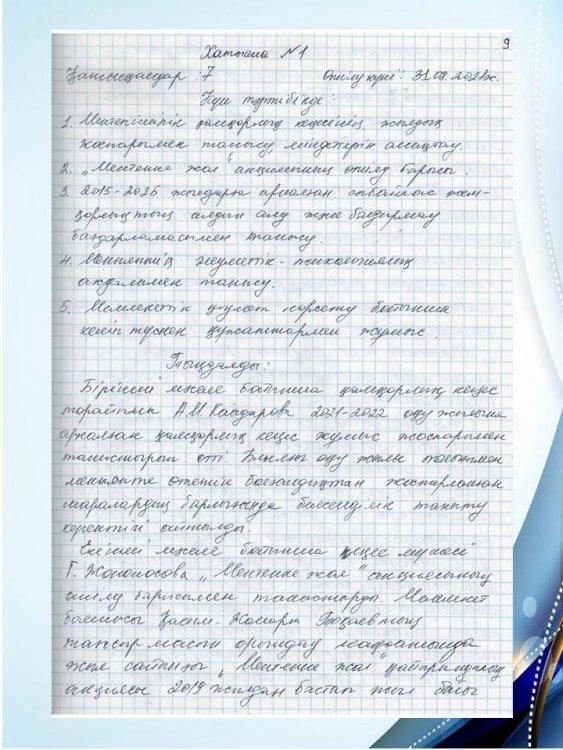 9
Хаттама №1
Қатысқандар: 7 Өткізу күні: 31.08.2021ж.
Күн тәртібінде:
1. Мектепішілік қамқорлық кеңесінің жылдық
жоспарымен танысу, міндеттерін анықтау.
2. „Мектепке жол" акциясының өтілу барысы.
3. 2015-2025 жылдарға арналған сыбайлас жем-
қорлықтың алдын алу және бағдарлау
бағдарламасымен танысу.
4. Мектептің әлеуметтік-психологиялық
ахуалымен танысу.
5. Мемлекеттік қызмет көрсету бойынша
келіп түскен құжаттармен жұмыс.
Тыңдалды:
Бірінші мәселе бойынша қамқорлық кеңес
төрайымы А.М. Кайдарова 2021-2022 оқу жылына
арналған қамқорлық кеңес жұмыс жоспарымен
таныстырып өтті. оқу жылы
мектепте өтетін жоспарланған
шаралардың барлығында белсенділік таныту
керектігі айтылды.
Екінші мәселе бойынша кеңес мүшесі
Г. „Мектепке жол" акциясының
өтілу барысымен таныстырды. Мемлекет
басшысы Қасым-Жомарт Тоқаевтың
тапсырмасын орындау мақсатында
жыл сайынғы „Мектепке жол" қайырымдылық
акциясы 2019 жылдан бастап жыл бойы